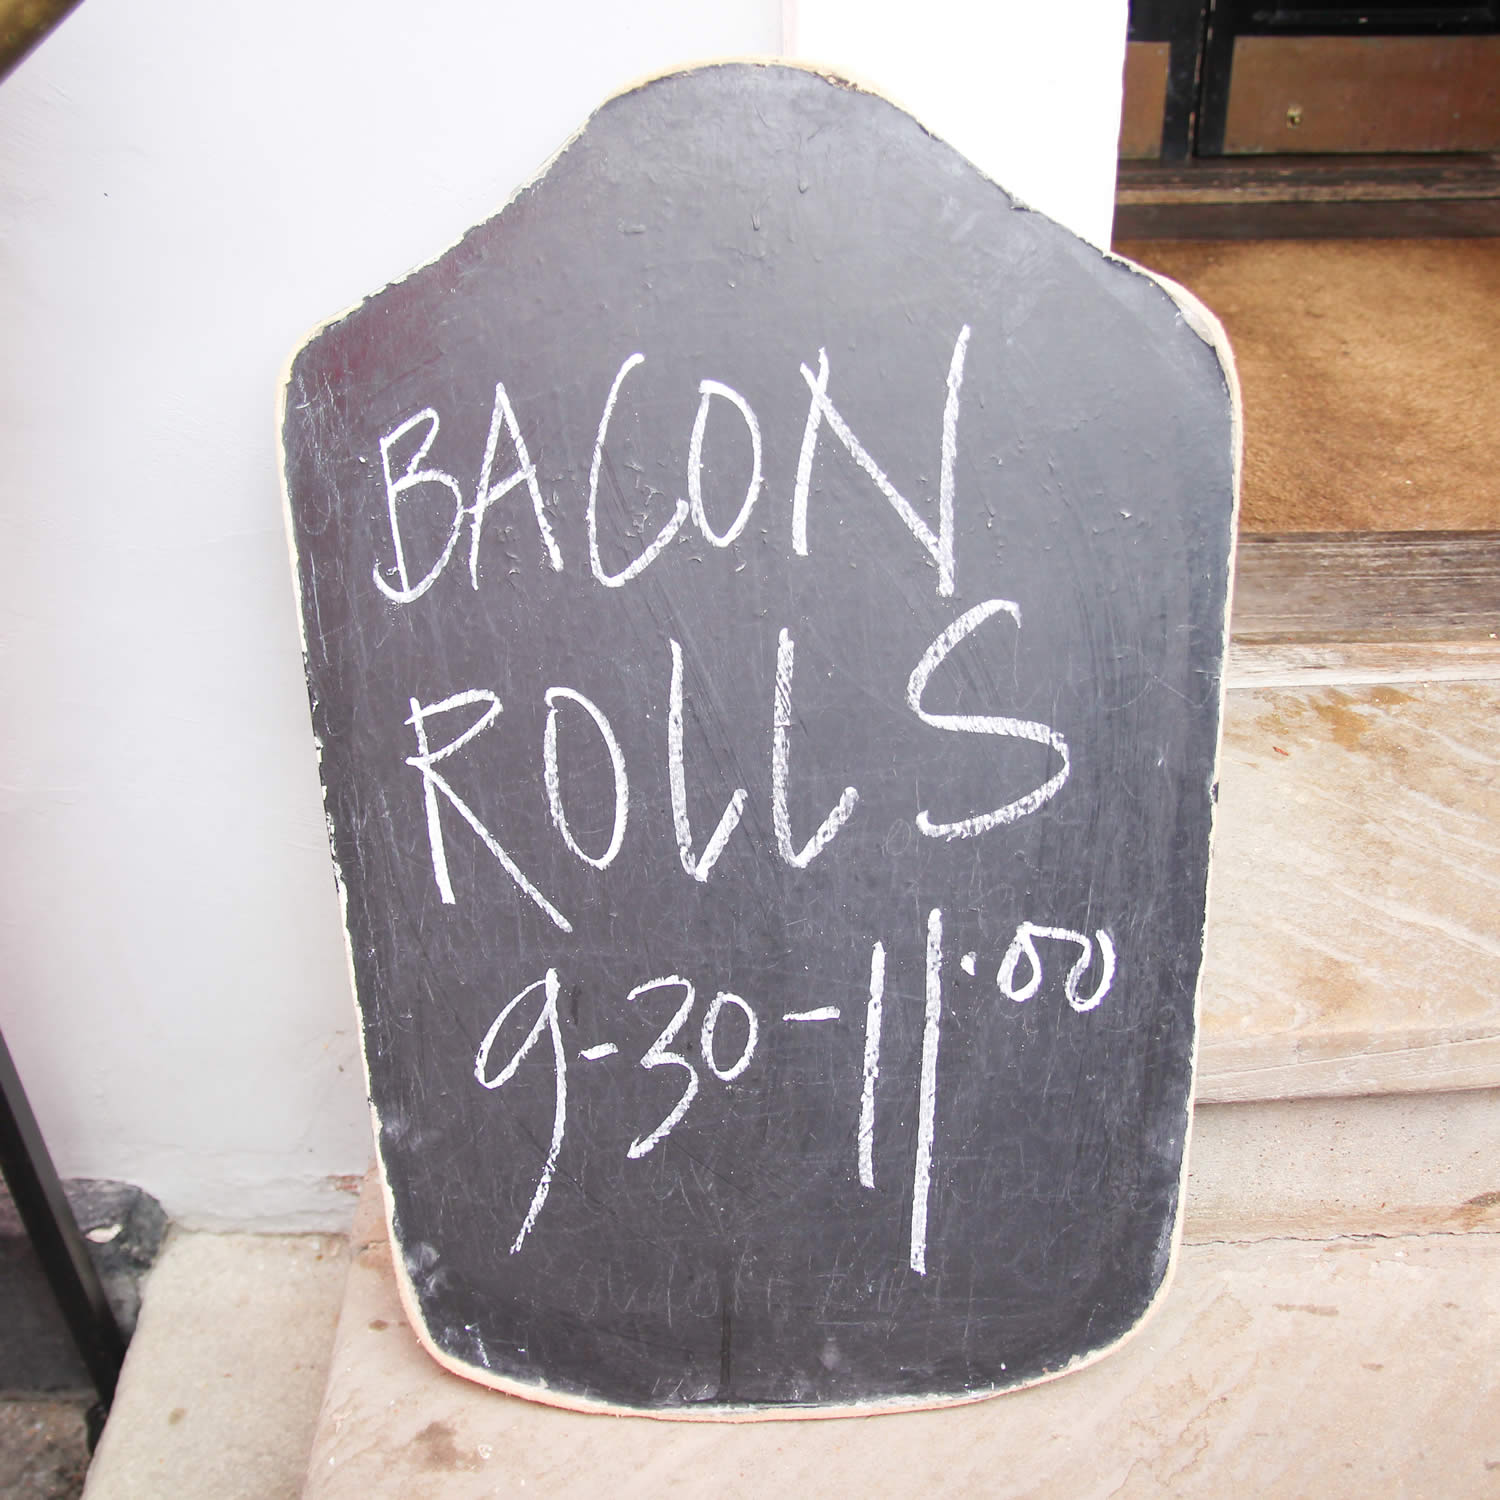 BACON
ROLLS
9-30-11.00